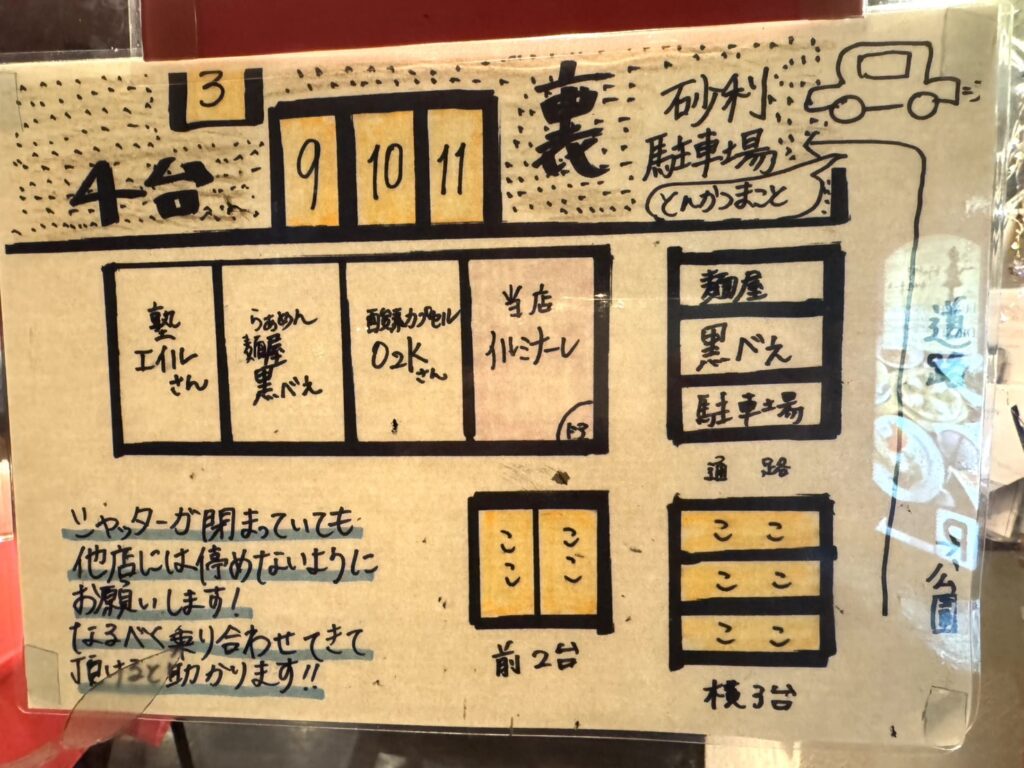 3
9
10
11
4台
裏
砂利
駐車場
とんかつまこと
塾
エイル
さん
らぁめん
麺屋
黒べえ
酸素カプセル
O2K
さん
当店
イルミナーレ
ドア
麺屋
黒べえ
駐車場
通路
ここ
ここ
前2台
ここ
ここ
ここ
横3台
公園
シャッターが閉まっていても
他店には停めないように
お願いします!
なるべく乗り合わせてきて
頂けると助かります!!